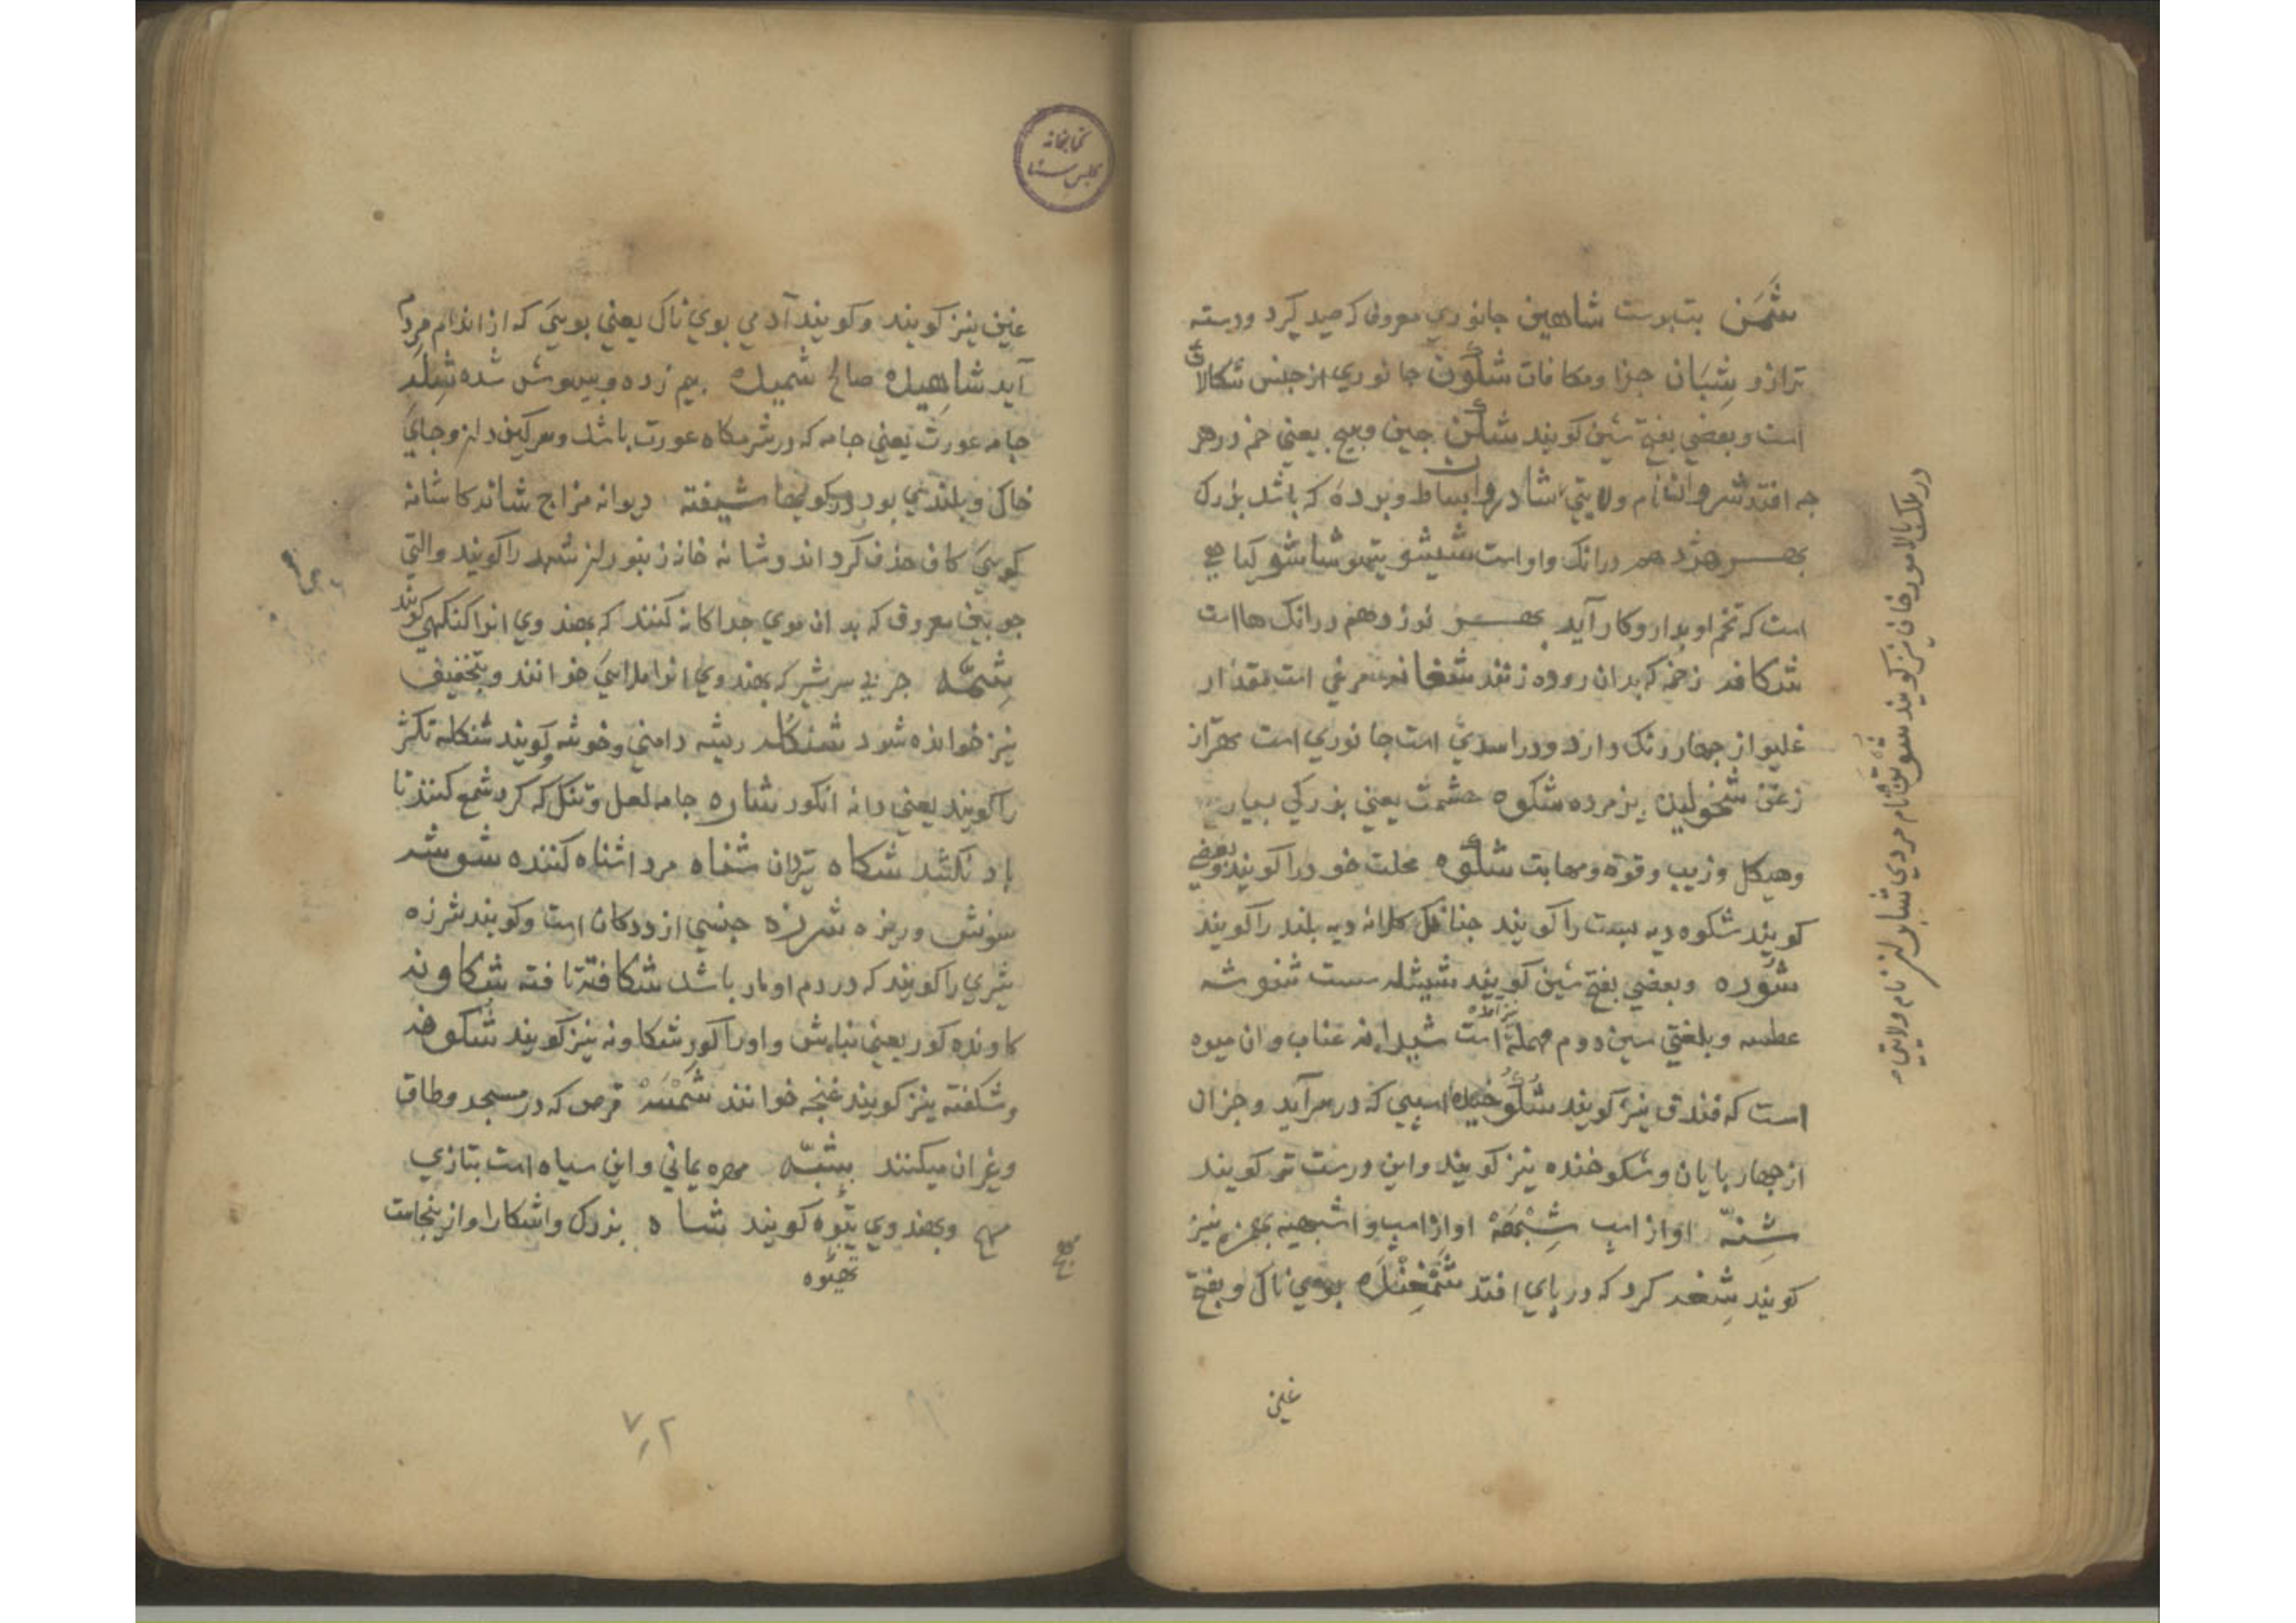 شَمَن بت‌پرست شاهین جانوری معروف که صید کیرد ودسته
ترازو شِبَان جزا ومکافات شلون جانوری از جنس شکالا
است وبعضی بفتح شین کویند شکن جین وپیچ یعنی خم در هر
جه افتد شروان نام ولایتی شادروان بساط وپرده که باشد بزرک
بهر هژدهم درانک واو است شیشو یتهو شاشو کیاهی
است که تخم او بدارو کار آید بهر نوزدهم درانک ها است
شکافه زخمه که بدان رود زنند شغانه مرغی است بمقدار
غلیواز جهار رنک دارد ودر اسدی است جانوری است بهتر از
زغن شخولیده پژمرده شکوه حشمت یعنی بزرکی بسیار
وهیکل وزیب وقوة ومهابت شکوه محلت خود را کویند وبعضی
کویند شکوه دیه پست را کویند جنانک کلاته دیه بلند را کویند
شوره وبعضی بفتح شین کویند شیشله سست شنوشه
عطسه وبلغتی سین دوم مهمله است شیلانه عناب وان میوه
است که فندق نیز کویند شکوخیده اسبی که در سر آید وجزان
از جهارپایان وشکوخنده نیز کویند واین درست تر کویند
شِنّه اواز اسب شِیْهَه اواز اسپ واشیهه بهمزه نیز
کویند شغه کرد که در پای افتد شَمْغَنْده بوی ناک وبفتح
غین
در ملک بالا مورخان نیز کویند نام مردی شابران نام ولایتی
کتابخانه
مجلس سنا
غین نیز کویند وکویند آدمی بوی ناک یعنی بویی که از اندام مردم
آید شاهیده صالح شمیده بیم زده وبیهوش شده شله
جامه عورت یعنی جامه که در شرمکاه عورت باشد وسرکین‌دان وجای
خاک وپلیدی بود در کویها شیفته دیوانه مزاج شانه کاشانه
کویی کاف حذف کرده‌اند وشانه خانه زنبوران شهد را کویند والتی
جوبین معروف که بدان موی جداکانه کنند که بهندوی انرا کنکهی کویند
شِمّه جربی سر شیر که بهندوی انرا ملایی خوانند وبتخفیف
نیز خوانده شود شنکله ریشه دامنی وخوشه کویند شنکله تکژ
را کویند یعنی دانه انکور شاره جامه لعل وتنک که کرد شمع کنند تا
باد نکشد شکاه تیردان شناه مرد اشناه کننده شوشه
سونش وریزه شرزه جنسی از ددکان است وکویند شرزه
شیری را کویند که در دم او مار باشد شکافته تافته شکاونه
کاونده کور یعنی نباش واورا کورشکاونه نیز کویند شکوفه
وشکفته نیز کویند غنجه خوانند شَمْسَه قرص که در مسجد وطاق
وغیر ان میکنند شبه مهره یمانی واین سیاه است بتازی
سبح وبهندوی پتوه کویند شاه بزرک واشکارا واز ینجاست
۷۲